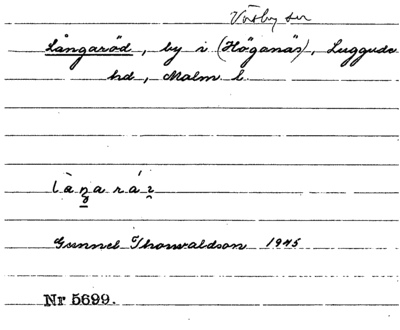 Väsby sn
Långaröd, by i (Höganäs), Luggude
hd, Malm l.
làn̥arár̯
Gunnel Thorvaldson 1945
Nr 5699.